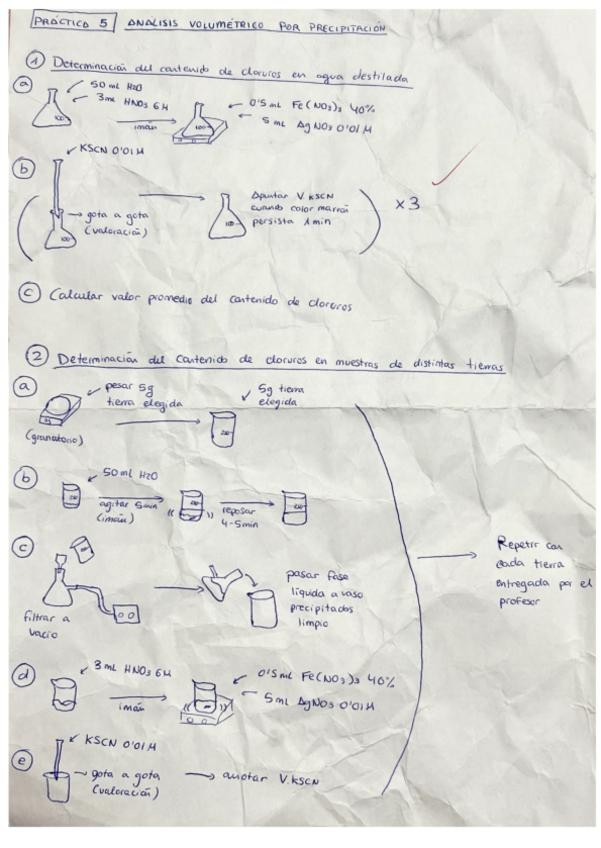 PRÁCTICA 5 ANÁLISIS VOLUMÉTRICO POR PRECIPITACIÓN
① Determinación del contenido de cloruros en agua destilada
ⓐ
50 ml H2O
3ml HNO3 6M
100
imán
100
0'5 mL Fe(NO3)3 40%
5 mL AgNO3 0'01 M
KSCN 0'01M
ⓑ
gota a gota
(valoración)
100
100
Apuntar V.KSCN
cuando color marrón
persista 1 min
x3
ⓒ Calcular valor promedio del contenido de cloruros
② Determinación del contenido de cloruros en muestras de distintas tierras
ⓐ
pesar 5g
tierra elegida
(granatorio)
5g tierra
elegida
250
ⓑ
50 ml H2O
250
agitar 5min
(imán)
250
reposar
4-5min
250
ⓒ
filtrar a
vacío
pasar fase
líquida a vaso
precipitados
limpio
Repetir con
cada tierra
entregada por el
profesor
ⓓ
3 mL HNO3 6M
imán
0'5 mL Fe(NO3)3 40%
5 mL AgNO3 0'01M
ⓔ
KSCN 0'01M
gota a gota
(valoración)
anotar V.KSCN